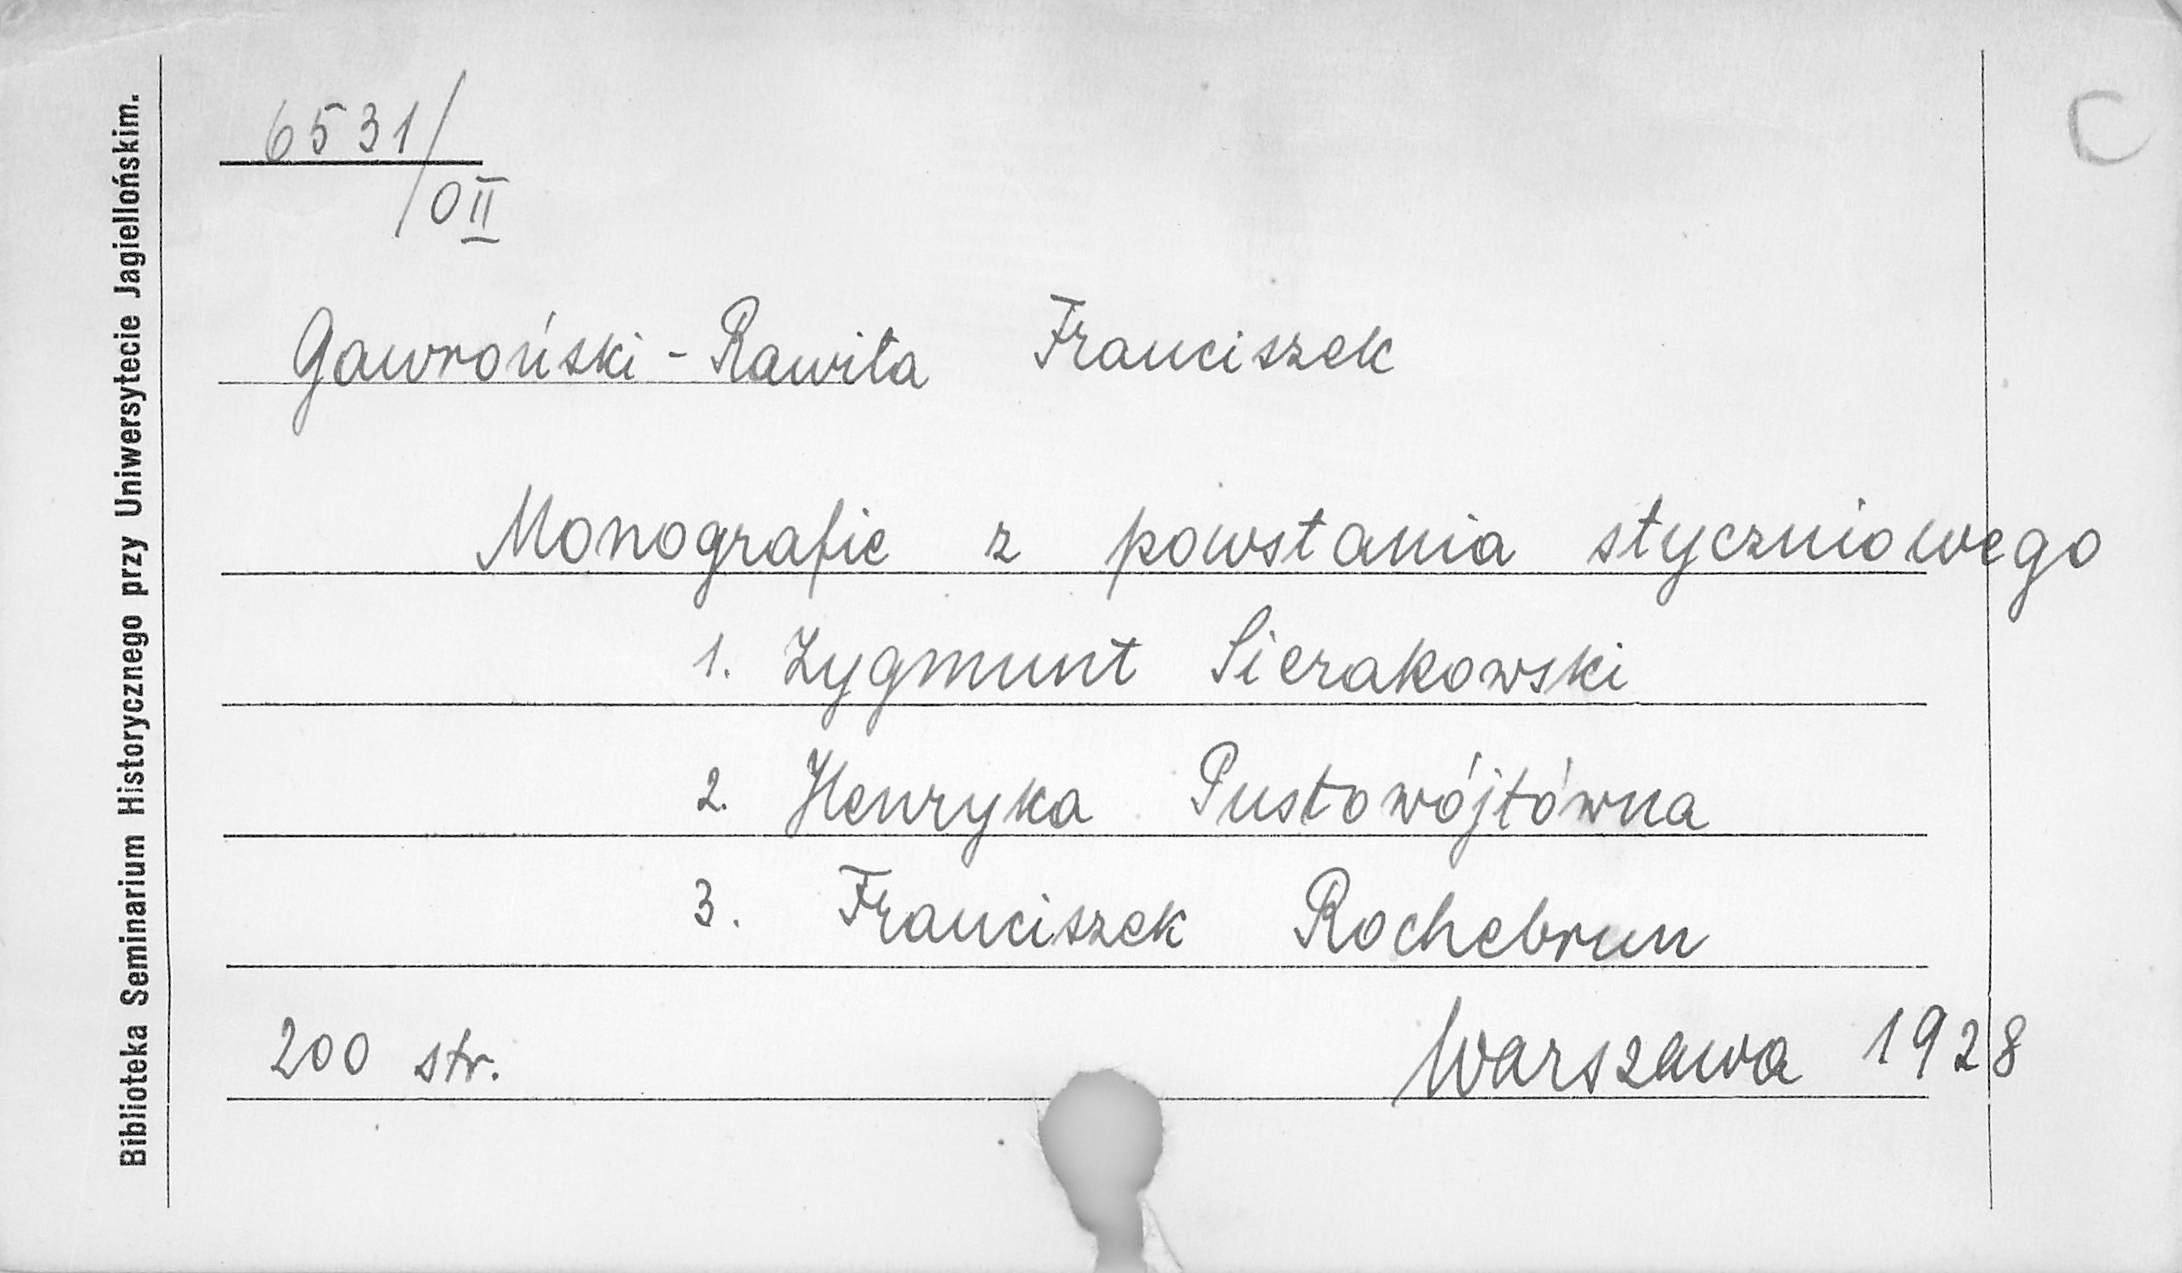 Biblioteka Seminarium Historycznego przy Uniwersytecie Jagiellońskim.
6531/
OII
C
Gawroński - Rawita Franciszek
Monografie z powstania styczniowego
1. Zygmunt Sierakowski
2. Henryka Pustowójtówna
3. Franciszek Rochebrun
200 str. Warszawa 1928